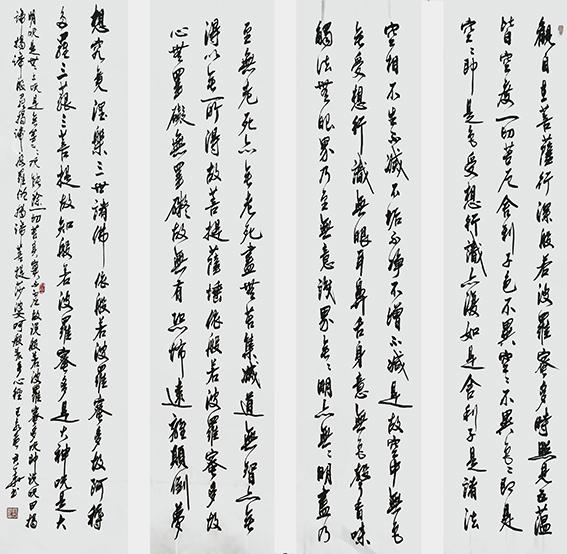 觀自在菩薩行深般若波羅蜜多時照見五蘊
皆空度一切苦厄舍利子色不異空〻不異色〻即是
空〻即是色受想行識亦復如是舍利子是諸法
空相不生不滅不垢不淨不增不減是故空中無色
無受想行識無眼耳鼻舌身意無色聲香味
觸法無眼界乃至無意識界無〻明亦無〻明盡乃
至無老死亦無老死盡無苦集滅道無智亦無
得以無所得故菩提薩埵依般若波羅蜜多故
心無罣礙無罣礙故無有恐怖遠離顛倒夢
想究竟涅槃三世諸佛依般若波羅蜜多故阿耨
多羅三藐三菩提故知般若波羅蜜多是大神咒是大
明咒是無上咒是無等〻咒能除一切苦真實不虛故說般若波羅蜜多咒即說咒曰揭
諦揭諦般羅揭諦般羅僧揭諦菩提莎婆呵般若多心經 書